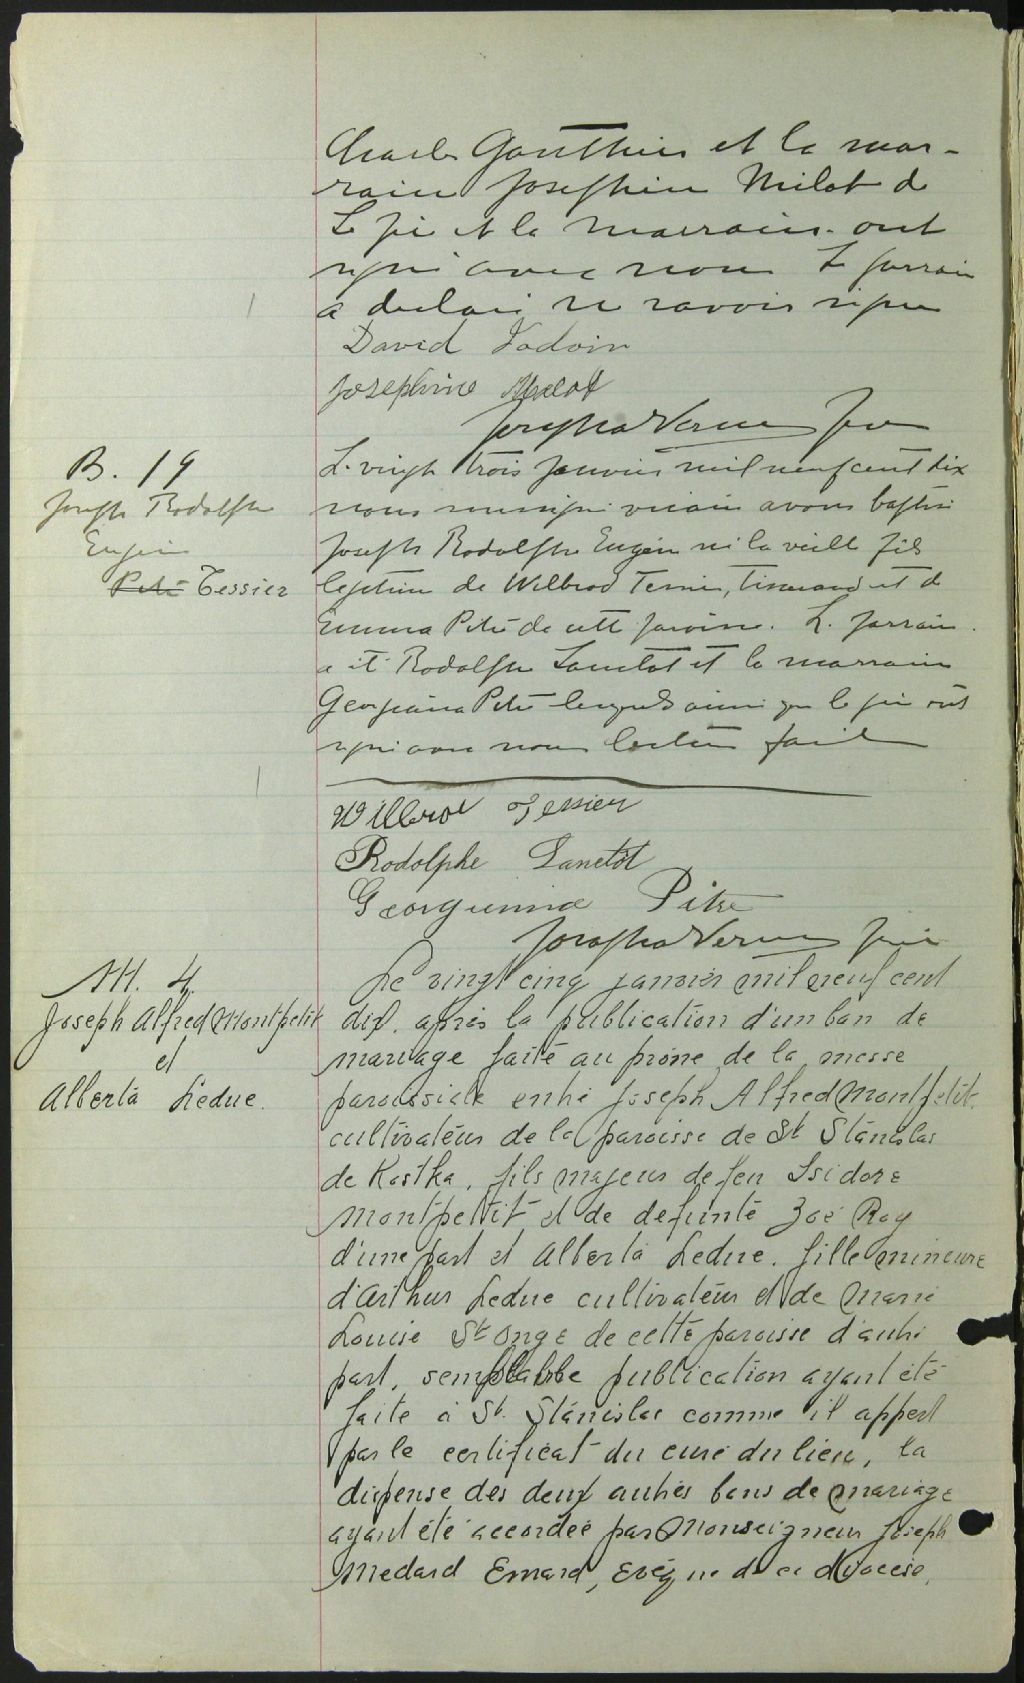 Charles Gauthier et la mar-
raine Josephine Milot de
Le père et la marraine ont
signé avec nous Le parrain
a déclaré ne savoir signer
David
Josephine Milot
Joseph a
B. 19
Joseph Rodolphe
Eugène
Pitre Tessier
Le vingt trois janvier mil neuf cent dix
nous soussigné vicaire avons baptisé
Joseph Rodolphe Eugène né la veille fils
légitime de Wilbrod Tessier, et de
Emma Pitre de cette paroisse. Le parrain
a été Rodolphe Lanctot et la marraine
Georgiana Pitre lesquels ainsi que le père ont
signé avec nous lecture faite
Wilbrod Tessier
Rodolphe Lanctôt
Georgianna Pitre
Joseph a
M. 4
Joseph Alfred Montpetit
et
Alberta Leduc.
Le vingt cinq janvier mil neuf cent
dix, après la publication d'un ban de
mariage faite au prône de la messe
paroissiale entre Joseph Alfred Montpetit,
cultivateur de la paroisse de St Stanislas
de Kostka, fils majeur de feu Isidore
Montpetit et de defunte Zoé Roy
d'une part et Alberta Leduc, fille mineure
d'Arthur Leduc cultivateur et de Marie
Louise St Onge de cette paroisse d'autre
part, semblable publication ayant été
faite à St. Stanislas comme il appert
par le certificat du curé du lieu, la
dispense des deux autres bans de mariage
ayant été accordée par Monseigneur Joseph
Medard Emard, Evêque de ce diocèse,